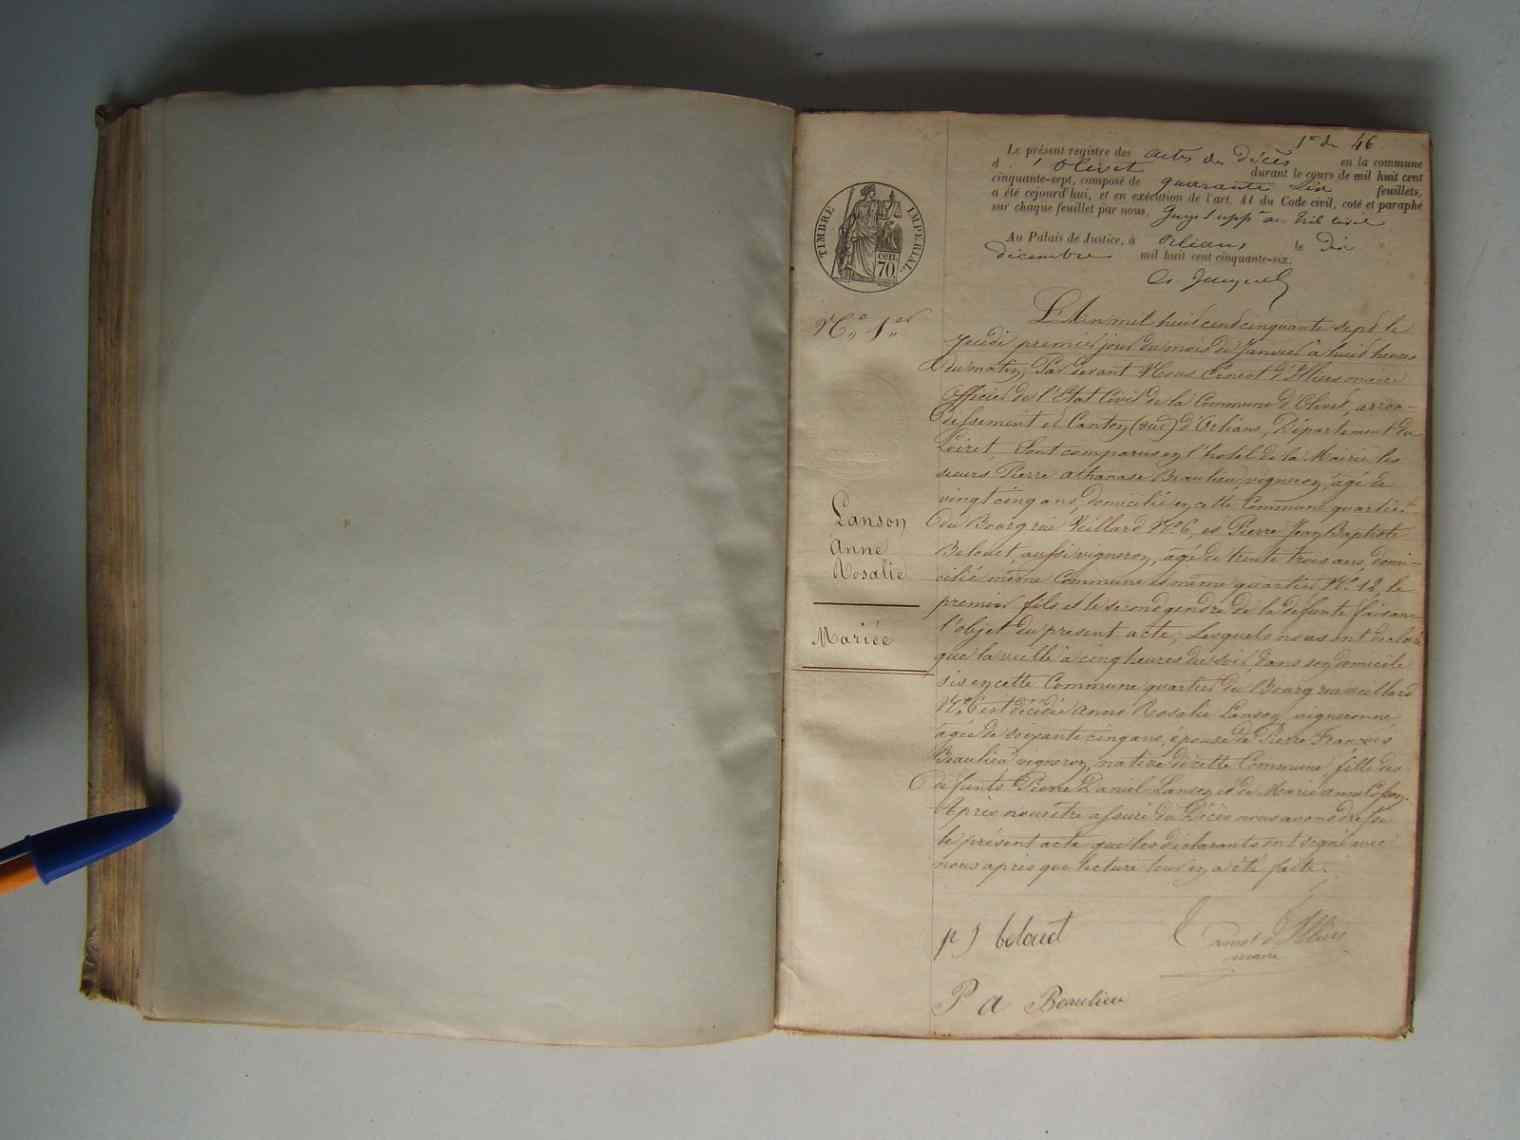 1er de 46
Le présent registre des actes de Décès en la commune
d'Olivet durant le cours de mil huit cent
cinquante-sept, composé de quarante six feuillets,
a été cejourd'hui, et en exécution de l'art. 41 du Code civil, coté et paraphé
sur chaque feuillet par nous, Juge supp. au Trib civil
Au Palais de Justice, à Orléans, le Dix
décembre mil huit cent cinquante-six.
TIMBRE IMPERIAL
70 cen.
No 1er
L'An mil huit cent cinquante sept le
Jeudi premier jour du mois de Janvier à huit heures
du matin, Par devant Nous Ernest d'Illiers maire
officier de l'Etat Civil de la Commune d'Olivet, arron-
dissement et Canton (sud) d'Orléans, Département du
Loiret, Sont comparus en l'hotel de la Mairie les
sieurs Pierre athanase Beaulieu, vigneron, âgé de
vingt cinq ans, domicilié en cette Commune quartier
du Bourg rue Veillard No 6, et Pierre Jean Baptiste
Belouet, aussi vigneron, âgé de trente trois ans, domi-
cilié même Commune et même quartier No 12, le
premier fils et le second gendre de la défunte faisant
l'objet du présent acte; Lesquels nous ont déclaré
que la veille à cinq heures du soir, dans son domicile
sis en cette Commune quartier du Bourg rue veillard
No 6 est décédée Anne Rosalie Lanson, vigneronne
âgée de soixante cinq ans, épouse de Pierre François
Beaulieu vigneron, native de cette Commune, fille des
défunts Pierre Daniel Lanson et de Marie anne
Après nous être assuré du Décès nous avons dressé
le présent acte que les déclarants ont signé avec
nous après que lecture leur en a été faite.
Lanson
Anne
Rosalie
Mariée
p J belouet
Ernest d'Illiers
maire
P a Beaulieu